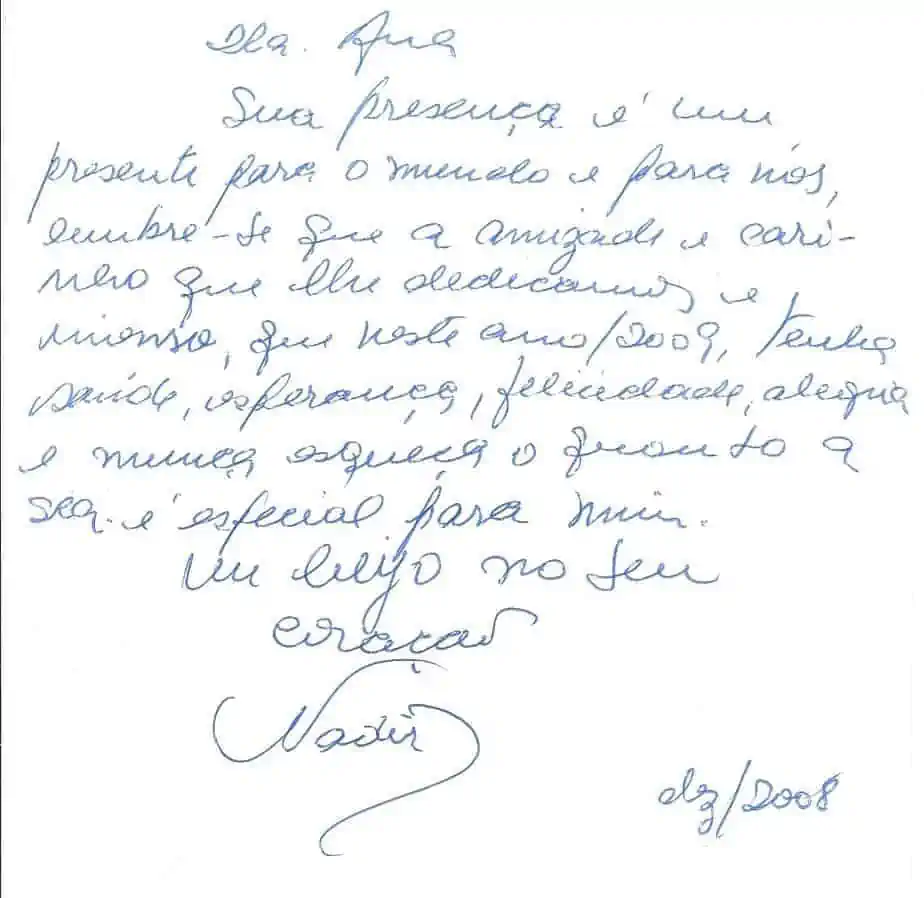 Dla. Ana
Sua presença é um
presente para o mundo e para nós,
lembre-se que a amizade e cari-
nho que lhe dedicamos é
imenso, que neste ano/2009, tenha
saúde, esperança, felicidade, alegria
e nunca esqueça o quanto a
sra. é especial para mim.
Um beijo no seu
coração
Nadir
dez/2008